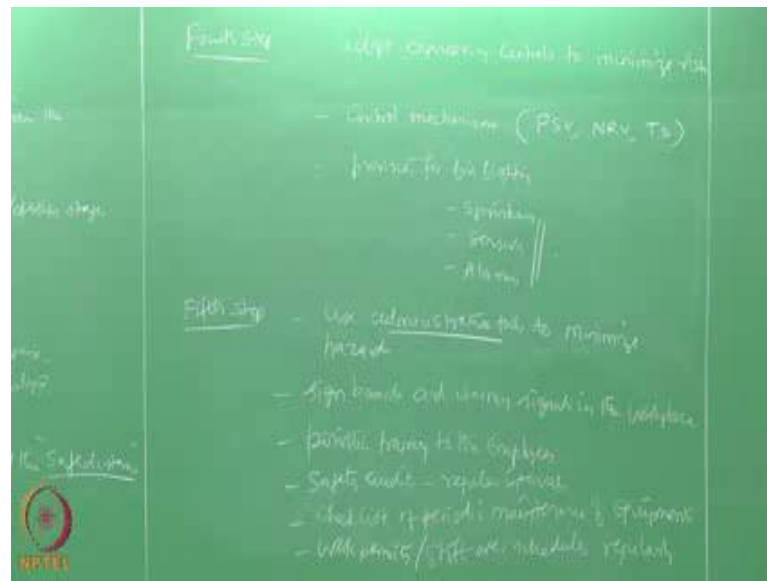 the
stage
"Safe
Fourth step adopt engineering controls to minimize risk
- Control mechanisms (PSV, NRV, TS)
- provision for fire fighting
- Sprinklers
- Sensors
- Alarms
Fifth step - Use administrative to minimize
hazard
- Sign boards and warning signals in the workplace
- periodic training to the employees
- Safety audit - regular interval
- Checklist of periodic maintenance of equipments
- Work permits / schedules regularly
NPTEL